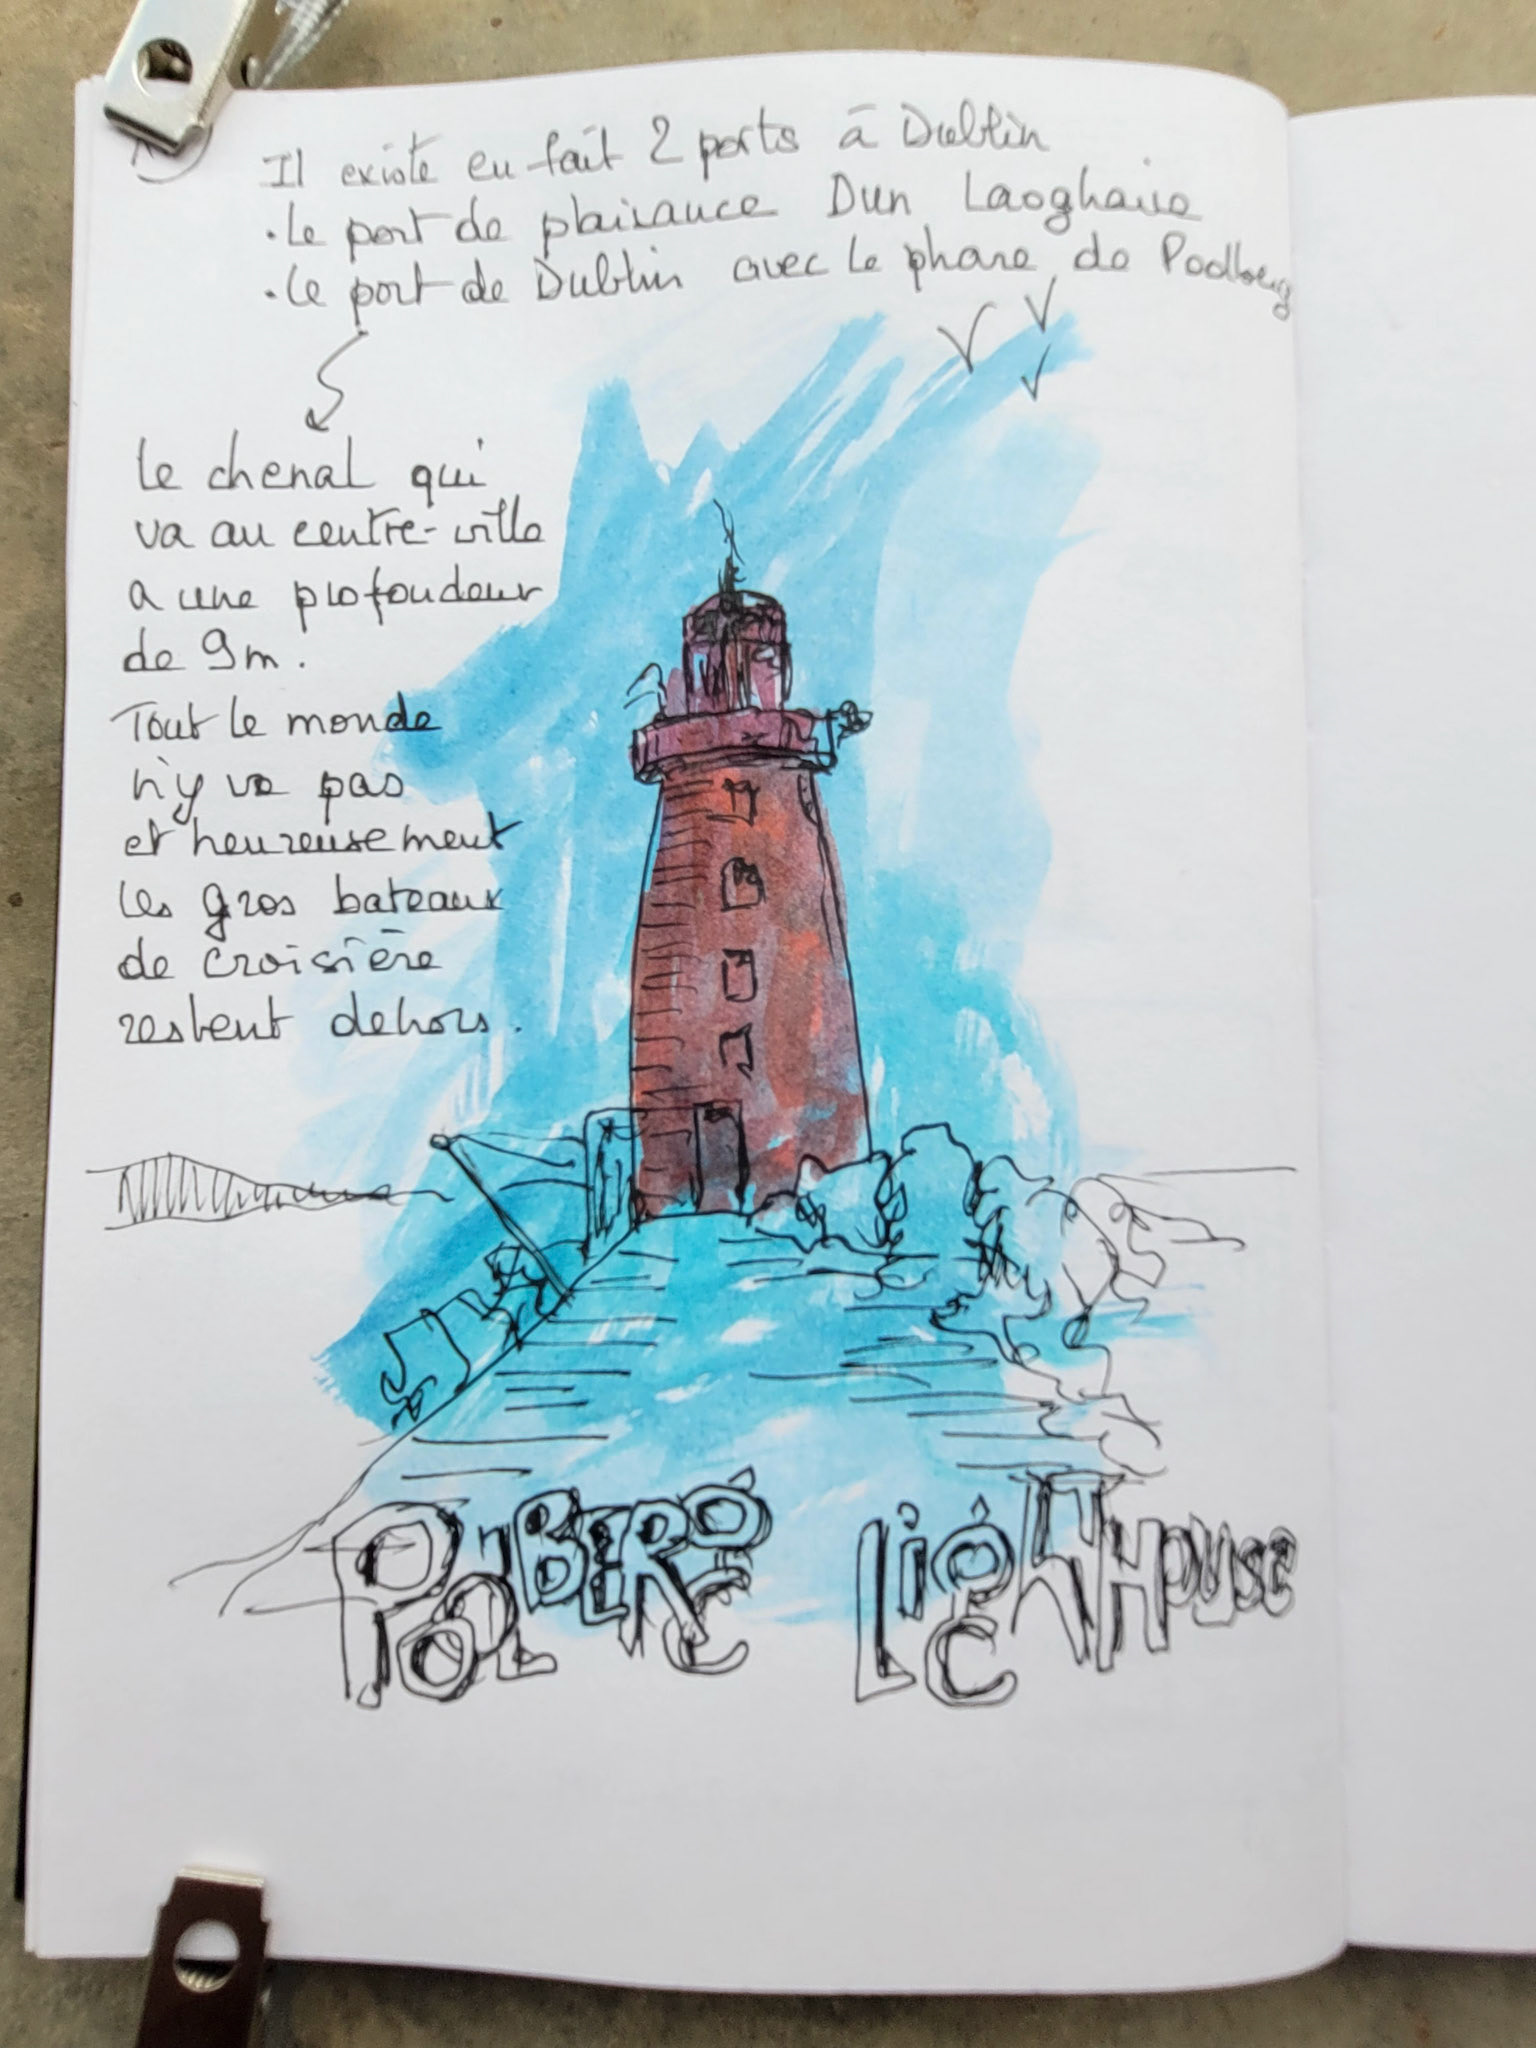 Il existe en fait 2 ports à Dublin
• le port de plaisance Dun Laoghaire
• le port de Dublin avec le phare de Poolbeg
le chenal qui
va au centre-ville
a une profondeur
de 9m.
Tout le monde
n'y va pas
et heureusement
les gros bateaux
de croisière
restent dehors.
POOLBERG LIGHTHOUSE